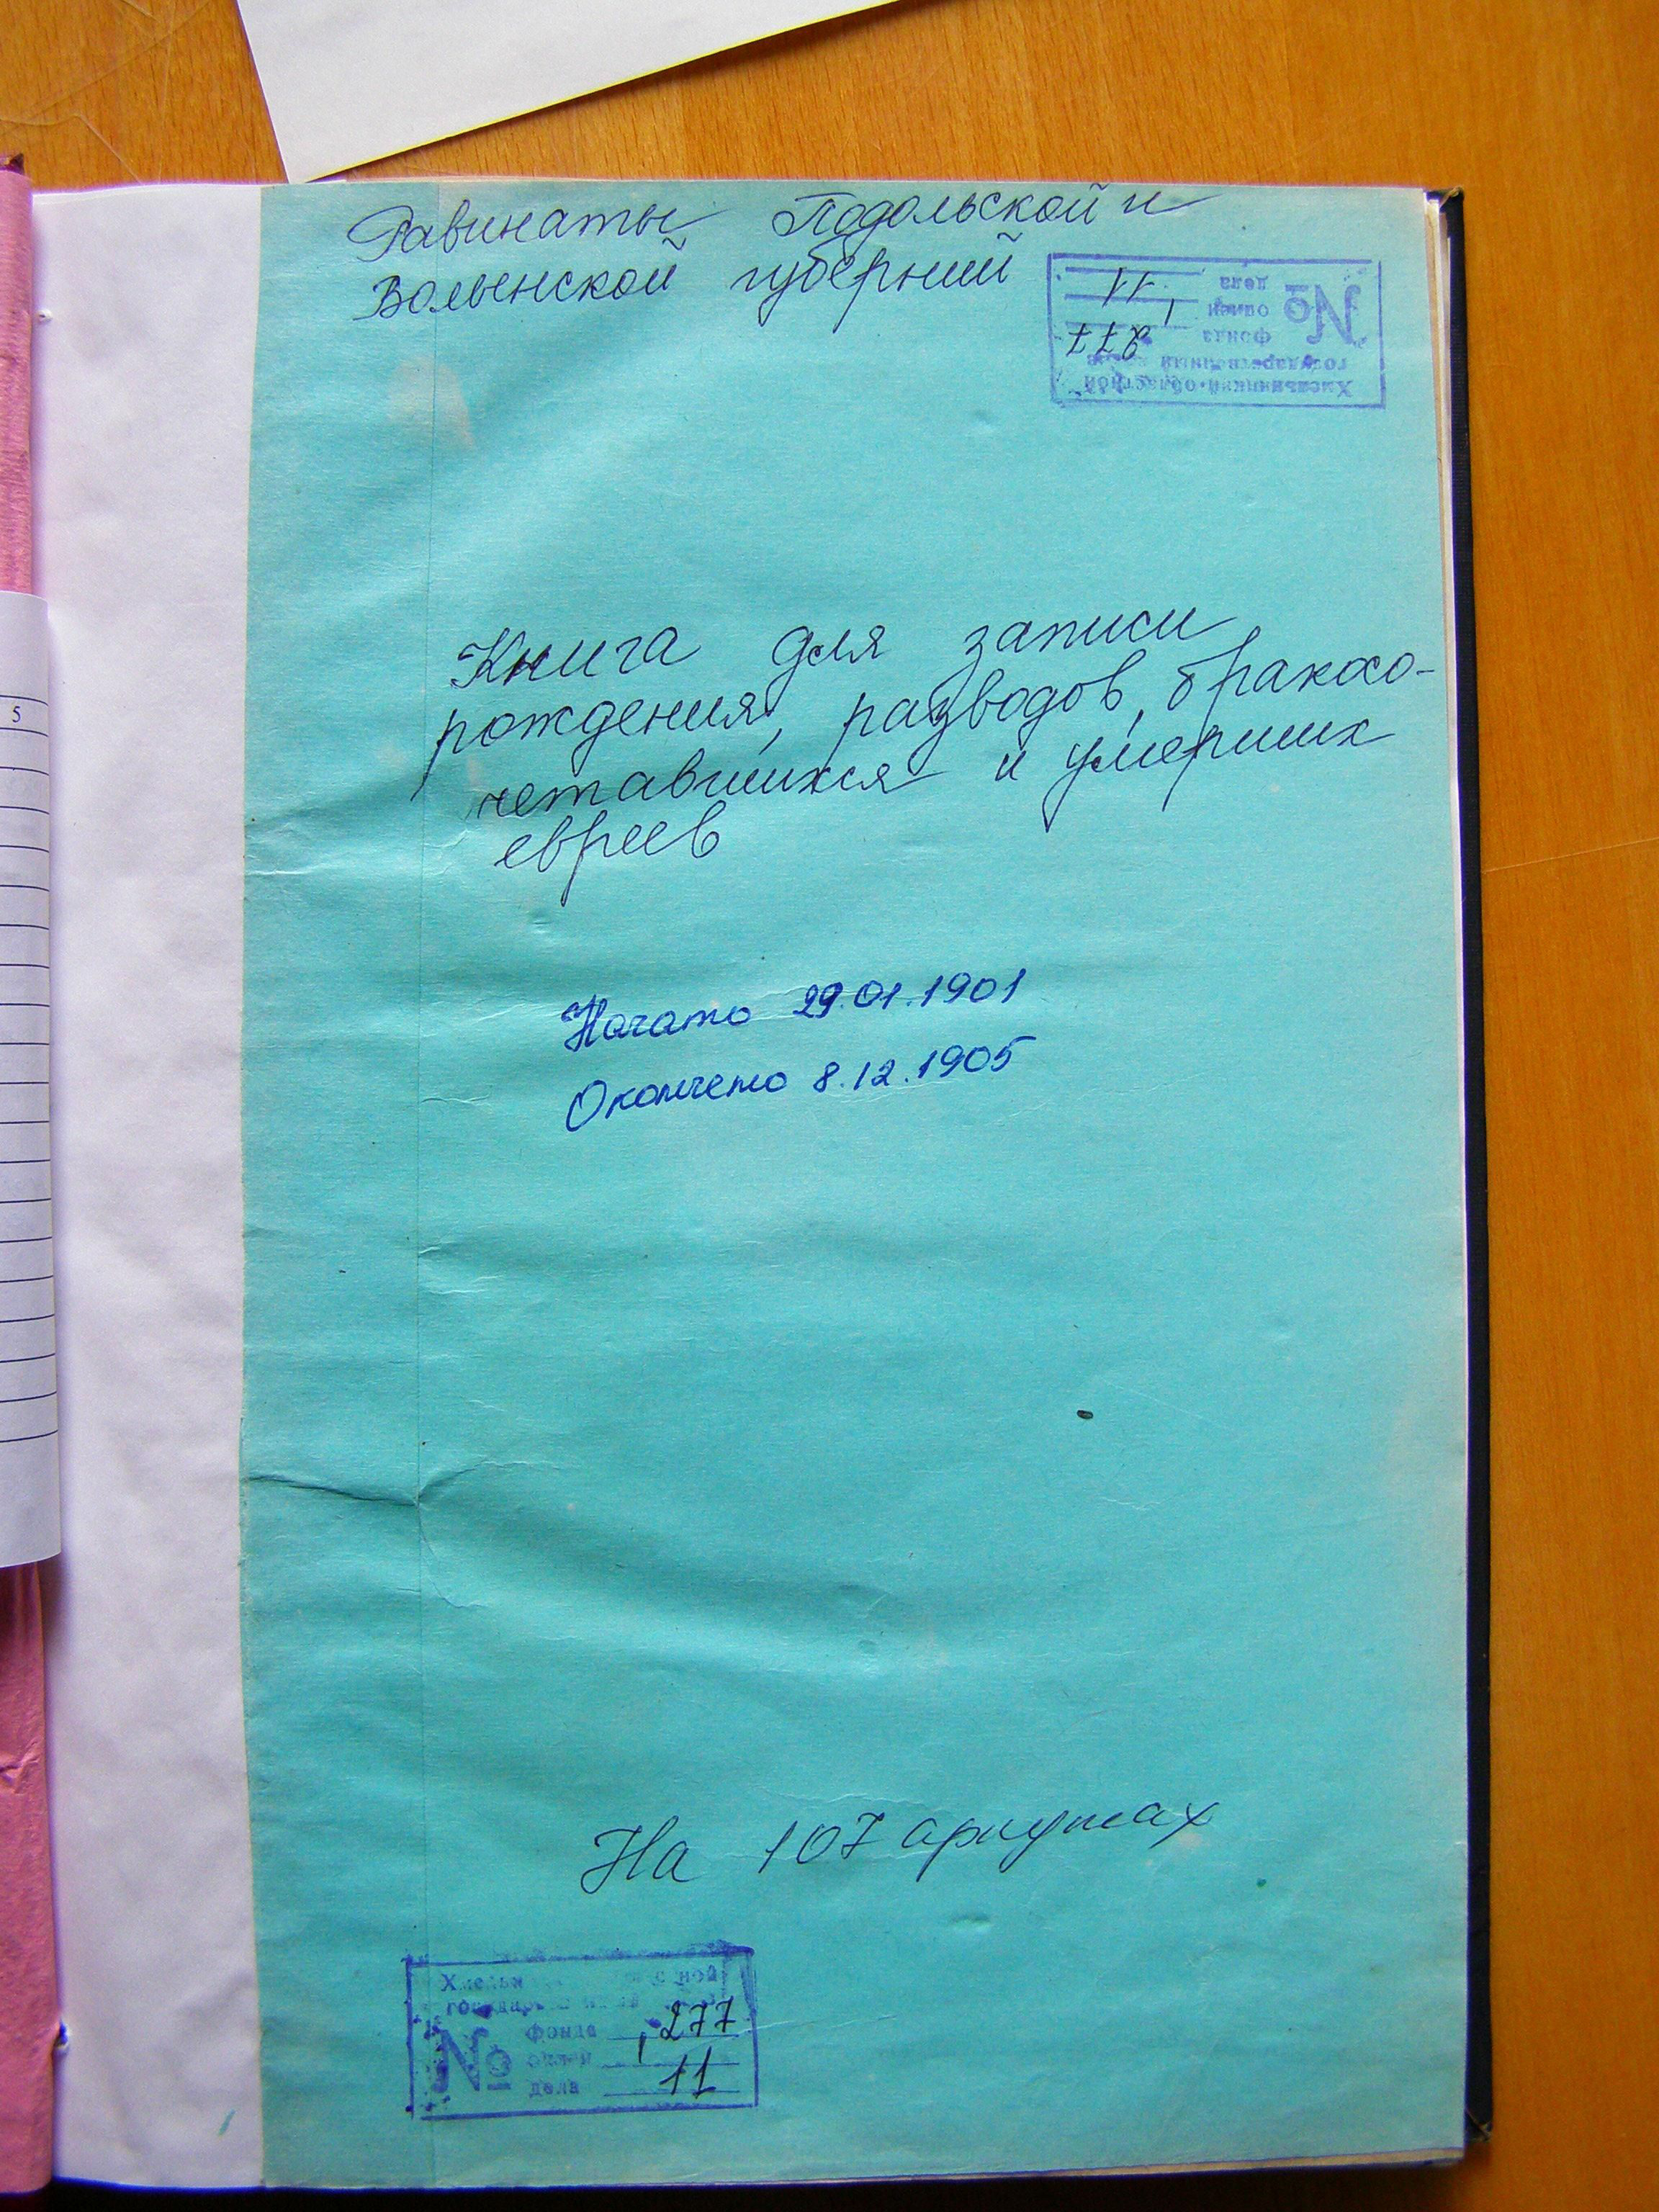 Равинаты Подольской и
Волынской губерний
Хмельницкий областной
государственный архив
№ фонда 277
описи 1
дела 11
Книга для записи
рождения, разводов, бракосо-
четавшихся и умерших
евреев
Начато 29.01.1901
Окончено 8.12.1905
На 107 аркушах
Хмельн ной
государст
№ фонда 277
описи 1
дела 11
5